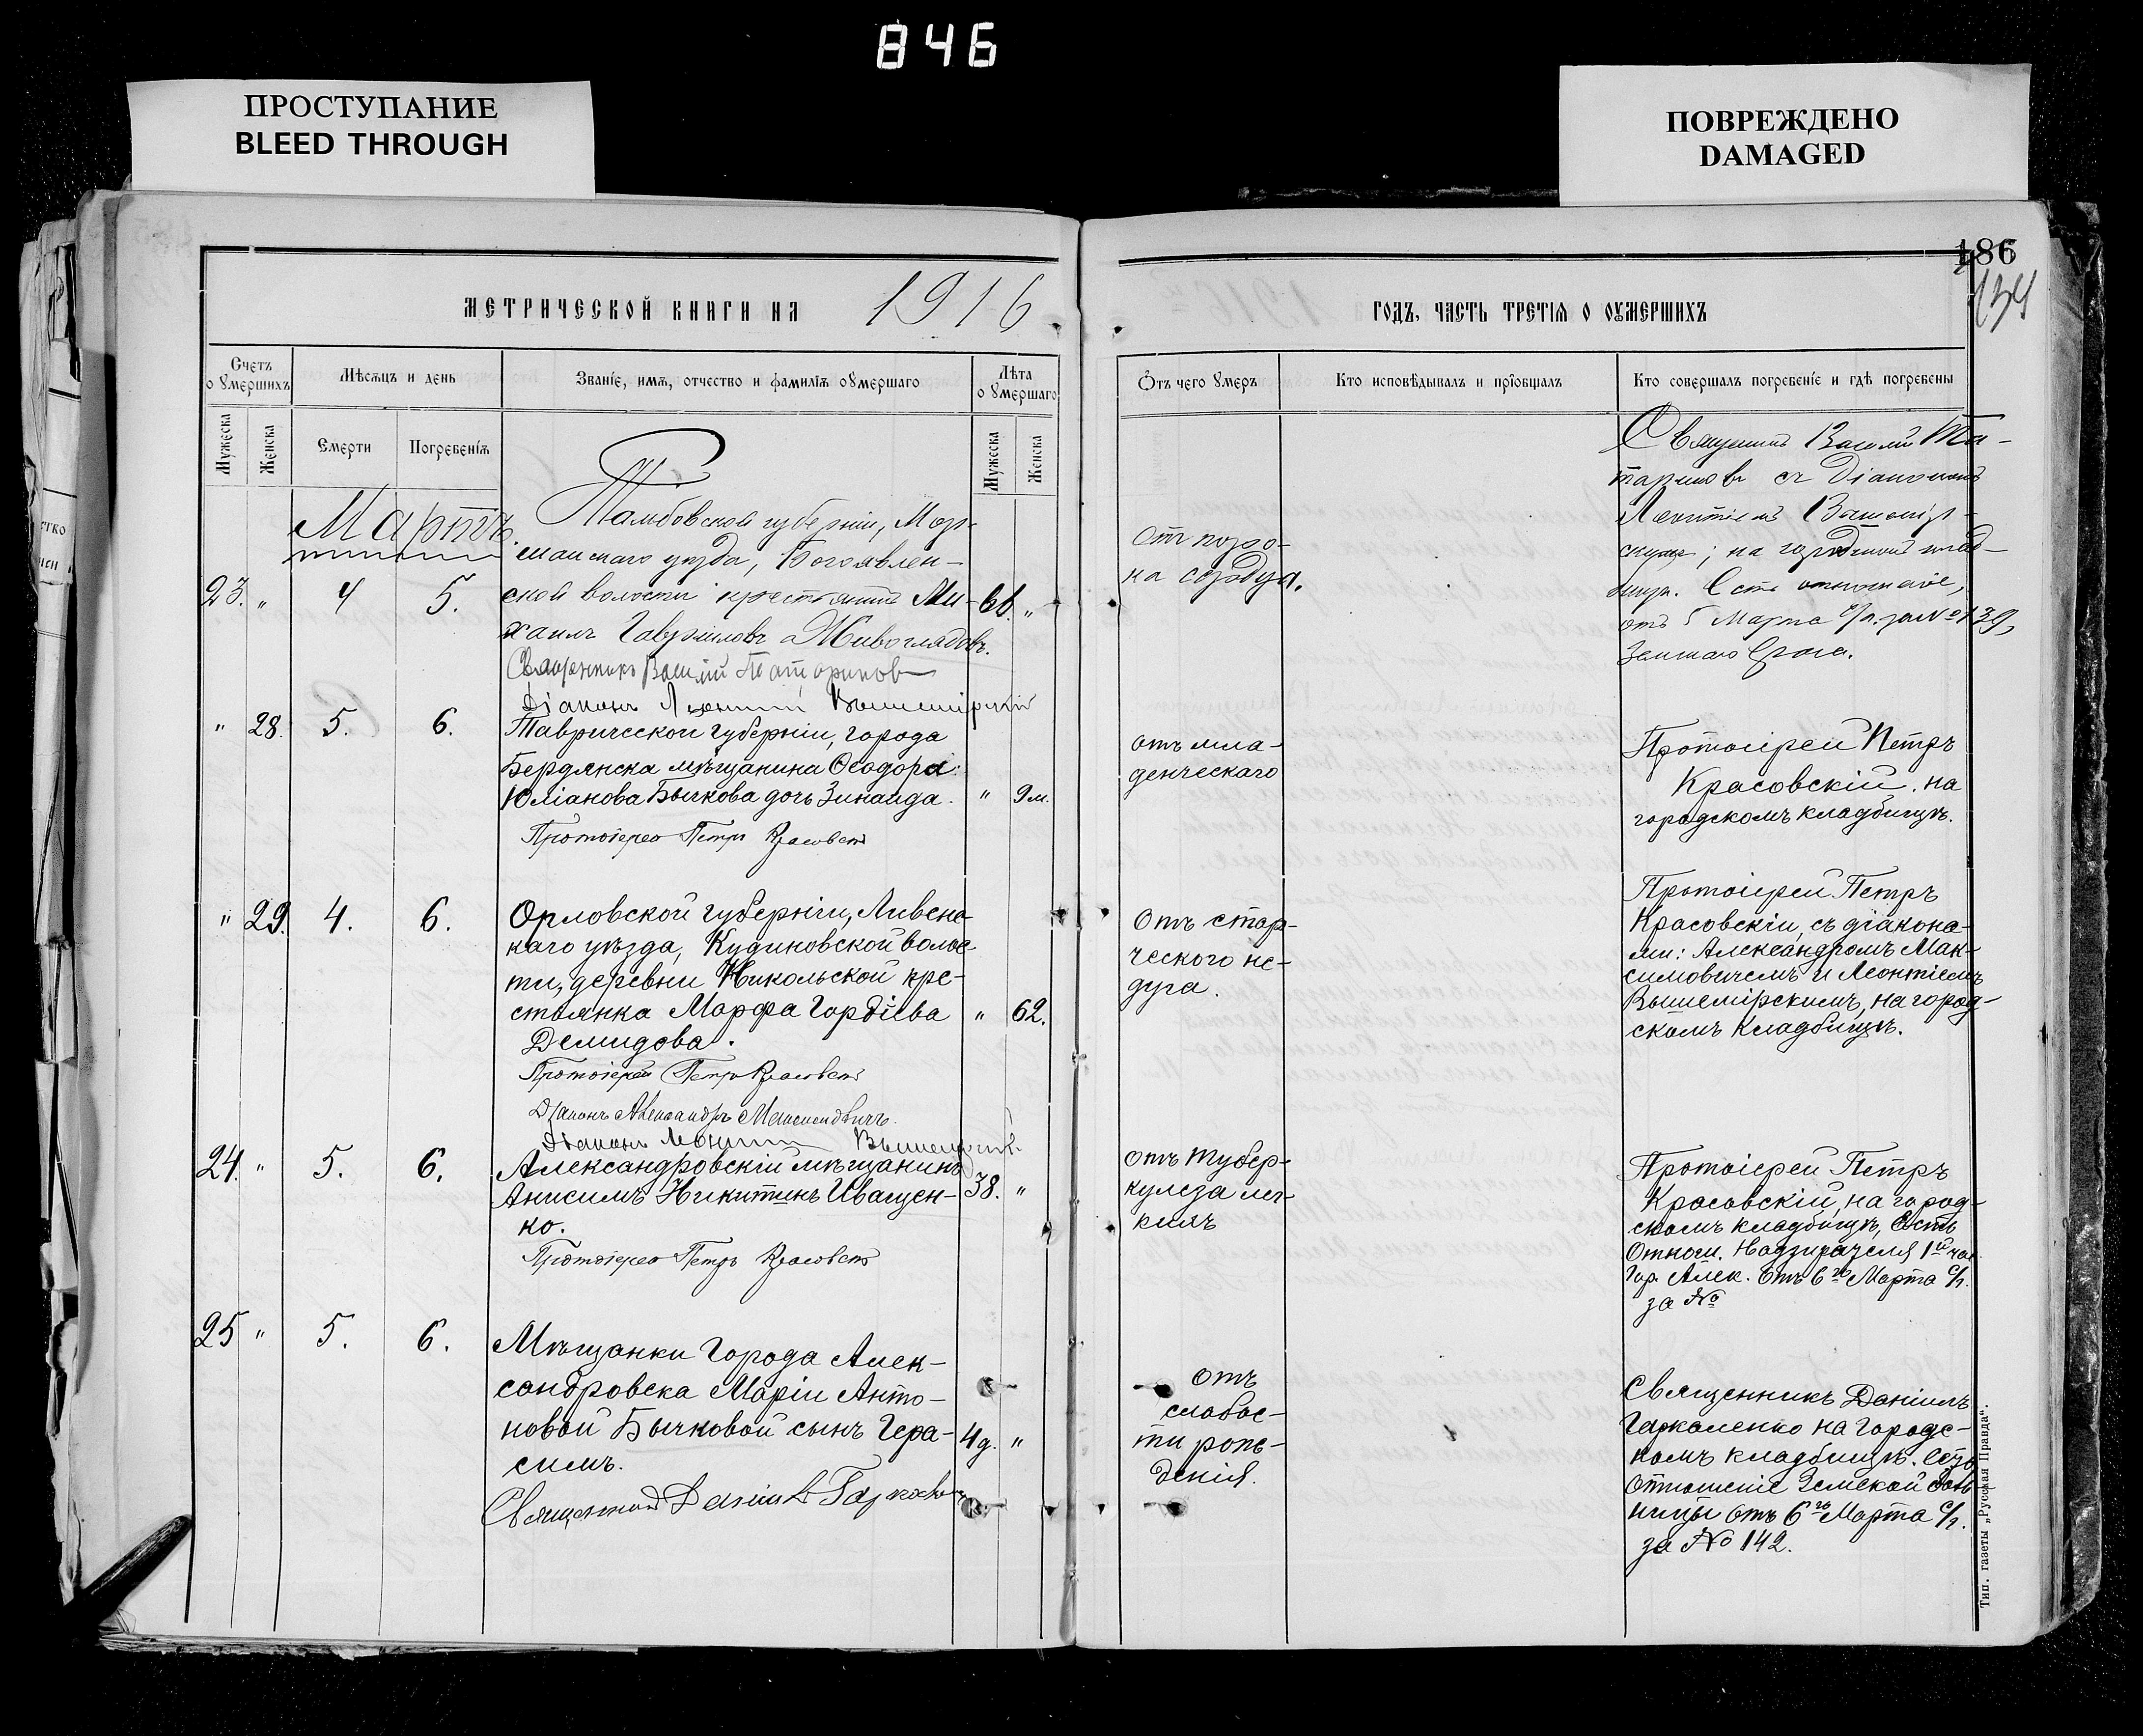 846
ПРОСТУПАНИЕ
BLEED THROUGH
ПОВРЕЖДЕНО
DAMAGED
186
134
МЕТРИЧЕСКОЙ КНИГИ НА 1916
ГОДЪ, ЧАСТЬ ТРЕТІЯ О ОУМЕРШИХЪ
Счетъ оумершихъ
Мѣсяцъ и день
Званіе, имя, отчество и фамилія оумершаго
Лѣта оумершаго
Отъ чего умеръ
Кто исповѣдывалъ и пріобщалъ
Кто совершалъ погребеніе и гдѣ погребены
Мужеска
Женска
Смерти
Погребенія
Мужеска
Женска
Мартъ.
23. " 4 5.
Тамбовской губерніи, Мор-
шанскаго уѣзда, Богоявлен-
ской волости крестьянинъ Ми-
хаилъ Гавриловъ Живоглядовъ.
66. "
Священникъ Василій Татариновъ
Діаконъ Леонтій Вышемірскій
Отъ поро-
ка сердца.
Священникъ Василій Та-
тариновъ съ діакономъ
Леонтіемъ Вышемір-
скимъ; на городскомъ клад-
бищѣ. Есть отношеніе,
отъ 5 Марта с/г. за № 139,
" 28. 5. 6.
Таврической губерніи, города
Бердянска мѣщанина Ѳеодора
Юліанова Бычкова дочь Зинаида.
" 9 м.
Протоіерей Петръ Красовскій
отъ мла-
денческаго
Протоіерей Петръ
Красовскій. на
городскомъ кладбищѣ.
" 29. 4. 6.
Орловской губерніи, Ливенс-
каго уѣзда, Кудиновской волос-
ти, деревни Никольской кре-
стьянка Марфа Гордѣева
Демидова.
" 62.
Протоіерей Петръ Красовскій
Діаконъ Александръ Максимовичъ
Діаконъ Леонтій Вышемірскій
Отъ стар-
ческого не-
дуга.
Протоіерей Петръ
Красовскій, съ діакона-
ми: Александромъ Мак-
симовичемъ и Леонтіемъ
Вышемірскимъ, на город-
скомъ кладбищѣ.
24. " 5. 6.
Александровскій мѣщанинъ
Анисимъ Никитинъ Иващен-
ко.
38. "
Протоіерей Петръ Красовскій
отъ тубер-
кулеза лег-
кихъ
Протоіерей Петръ
Красовскій, на город-
скомъ кладбищѣ, Есть
Отнош. Надзирателя 1й час.
Гор. Алек. отъ 6го Марта с/г.
за №
25 " 5. 6.
Мѣщанки города Алек-
сандровска Маріи Анто-
новой Бычковой сынъ Гера-
симъ.
4 д. "
Священникъ Даніилъ Гаркаленко
отъ
слабос-
ти рож-
денія.
Священникъ Даніилъ
Гаркаленко на городс-
комъ кладбищѣ. Есть
отношеніе Земской боль
ницы отъ 6го Марта с/г.
за № 142.
Тип. газеты „Русская Правда“.